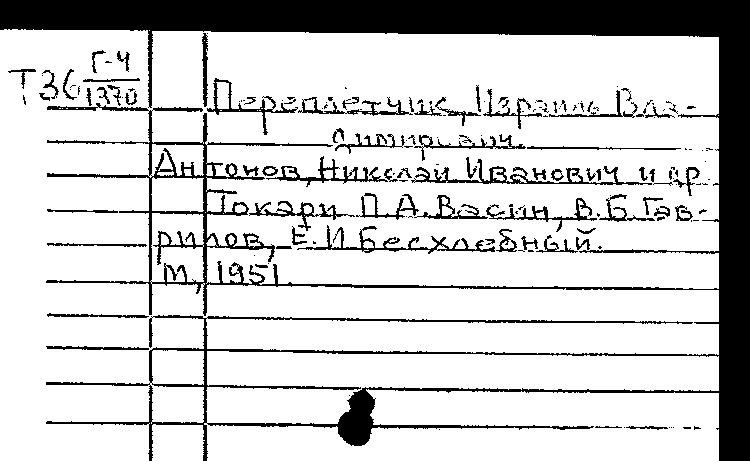 Т36 Г-4/1370
Переплетчик, Израиль Вла-
димирович.
Антонов, Николай Иванович и др
Токари П.А. Васин, В.Б Гав-
рилов, Е.И Бесхлебный.
М, 1951.